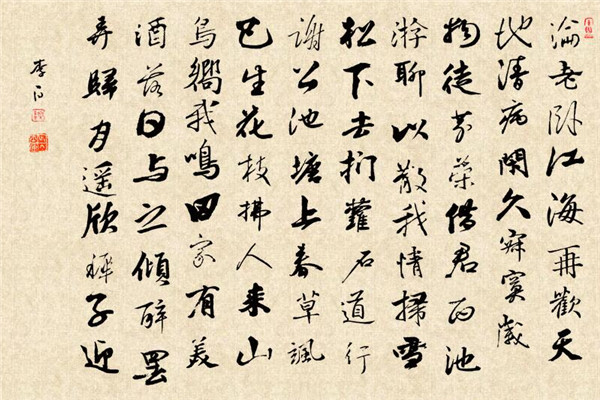 淪老卧江海再歡天
地清病閑久寂寞歲
物徒芬榮借君西池
游聊以散我情掃雪
松下去捫蘿石道行
謝公池塘上春草颯
已生花枝拂人来山
鳥嚮我鳴田家有美
酒落日与之傾醉罷
弄歸月遥欣稚子迎
李白